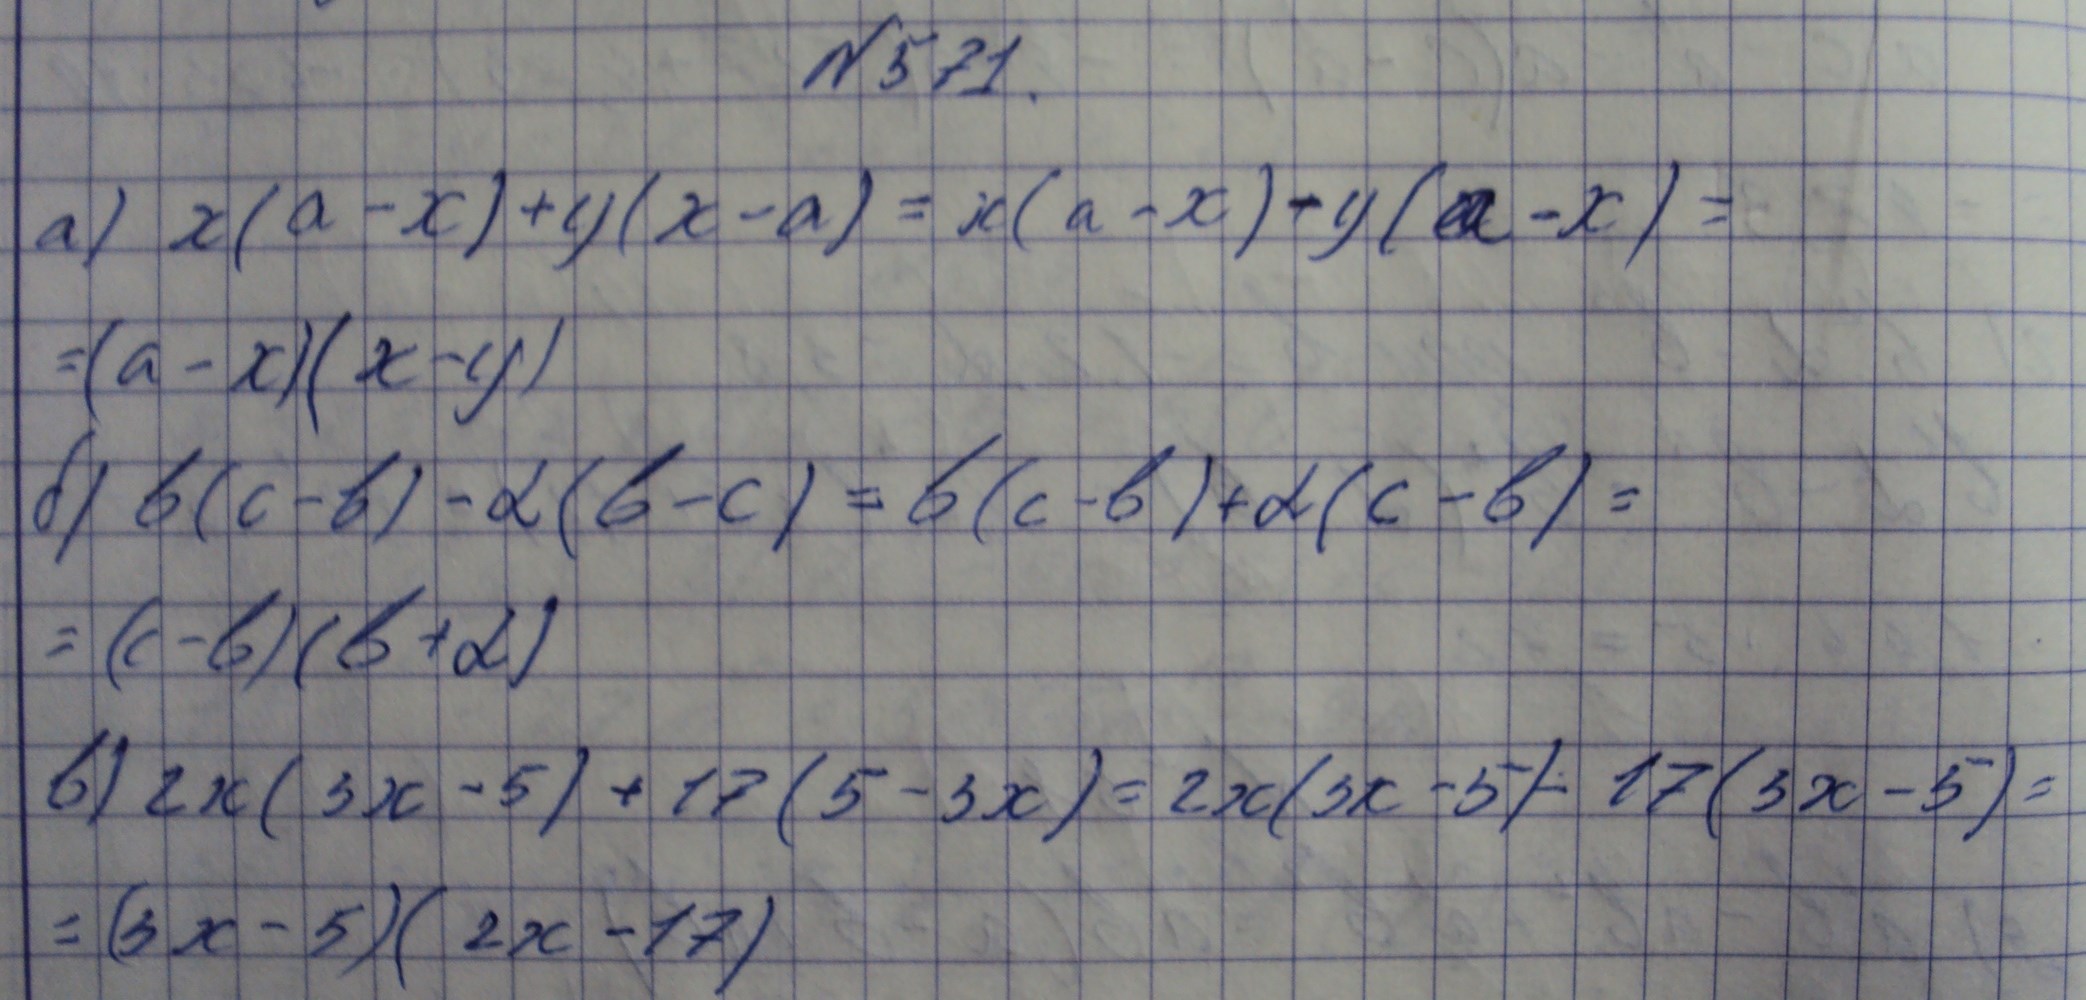 №571.
а) x(a-x)+y(x-a)=x(a-x)-y(a-x)=
=(a-x)(x-y)
б) b(c-b)-α(b-c)=b(c-b)+α(c-b)=
=(c-b)(b+α)
в) 2x(3x-5)+17(5-3x)=2x(3x-5)-17(3x-5)=
=(3x-5)(2x-17)